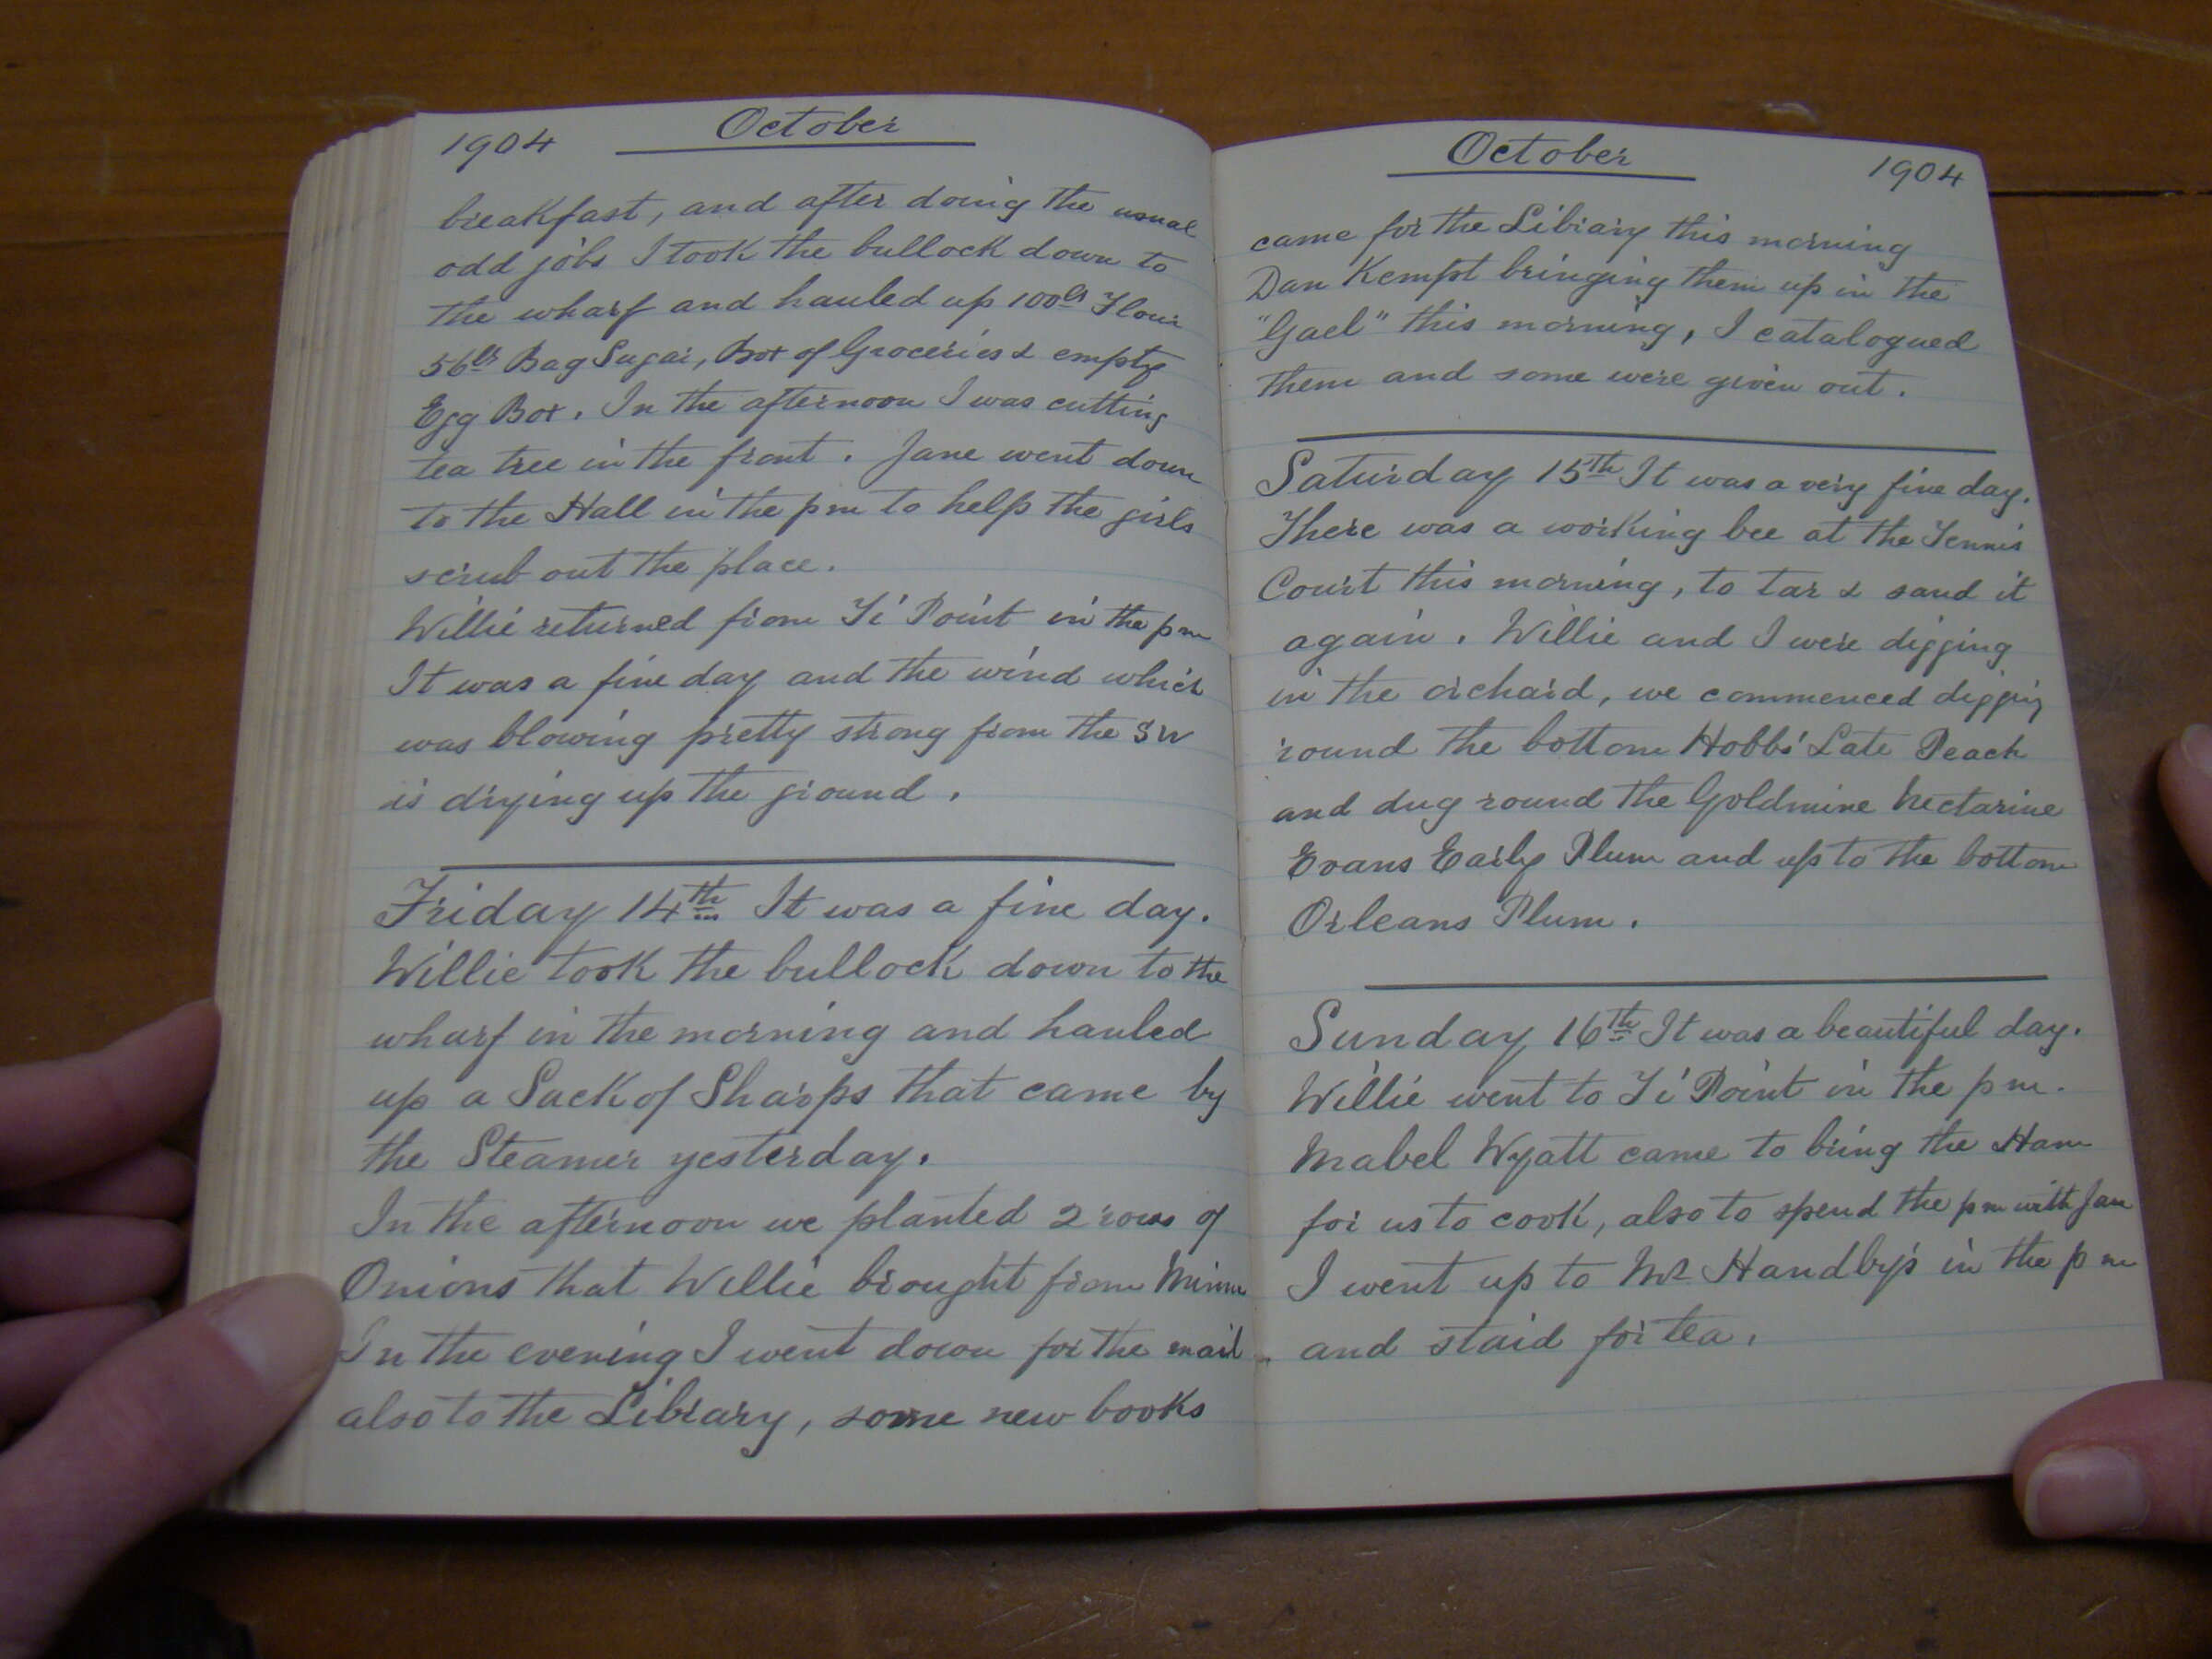 1904
October
breakfast, and after doing the usual
odd jobs I took the bullock down to
the wharf and hauled up 100lb Flour
56lb Bag Sugar, Box of Groceries & empty
Egg Box. In the afternoon I was cutting
tea tree in the front. Jane went down
to the Hall in the pm to help the girls
scrub out the place.
Willie returned from Ti Point in the pm
It was a fine day and the wind which
was blowing pretty strong from the SW
is drying up the ground.
Friday 14th It was a fine day.
Willie took the bullock down to the
wharf in the morning and hauled
up a Sack of Sharps that came by
the Steamer yesterday.
In the afternoon we planted 2 rows of
Onions that Willie brought from
In the evening I went down for the mail
also to the Library, some new books
October
1904
came for the Library this morning
Dan Kempt bringing them up in the
"Gael" this morning, I catalogued
them and some were given out.
Saturday 15th It was a very fine day.
There was a working bee at the Tennis
Court this morning, to tar & sand it
again. Willie and I were digging
in the orchard, we commenced digging
round the bottom Hobbs' Late Peach
and dug round the Goldmine Nectarine
Evans Early Plum and up to the bottom
Orleans Plum.
Sunday 16th It was a beautiful day.
Willie went to Ti Point in the pm.
Mabel Wyatt came to bring the Ham
for us to cook, also to spend the pm with Jane
I went up to Mr Handby's in the pm
and staid for tea.